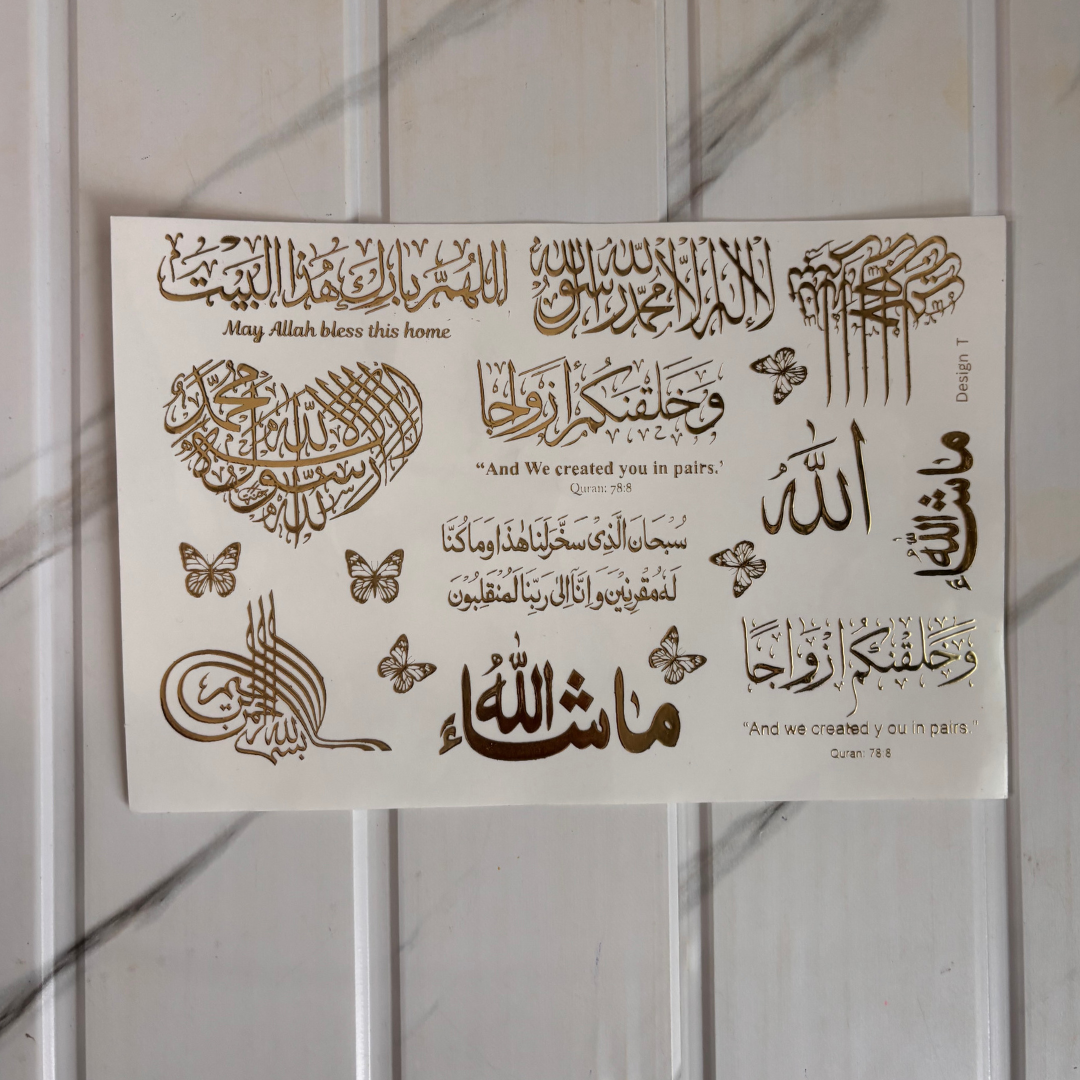 اللهم بارك هذا البيت
May Allah bless this home
لا إله إلا الله محمد رسول الله
Design T
لا إله إلا الله محمد رسول الله
وَخَلَقْنٰكُمْ أَزْوَاجًا
“And We created you in pairs.’
Quran: 78:8
الله
ما شاء الله
سُبْحَانَ الَّذِىْ سَخَّرَ لَنَا هٰذَا وَمَا كُنَّا
لَهُ مُقْرِنِيْنَ وَاِنَّآ اِلٰى رَبِّنَا لَمُنْقَلِبُوْنَ
بسم الله الرحمن الرحيم
ما شاء الله
وَخَلَقْنٰكُمْ اَزْوَاجًا
“And we created y ou in pairs.”
Quran: 78:8